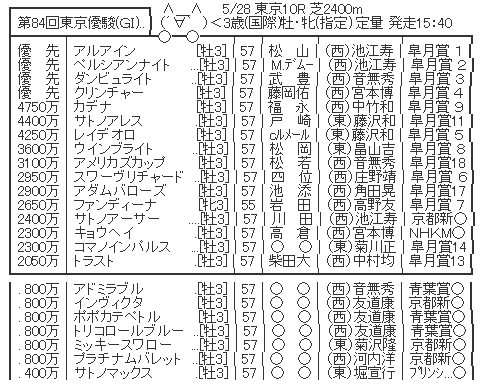 第84回東京優駿(GI)‥ 5/28 東京10R 芝2400m
<3歳(国際)牡・牝(指定) 定量 発走15:40
優 先 アルアイン [牡3] 57 松 山 (西)池江寿 皐月賞 1
優 先 ペルシアンナイト …[牡3] 57 M.デムー (西)池江寿 皐月賞 2
優 先 ダンビュライト …[牡3] 57 武 豊 (西)音無秀 皐月賞 3
優 先 クリンチャー [牡3] 57 藤岡佑 (西)宮本博 皐月賞 4
4750万 カデナ [牡3] 57 福 永 (西)中竹和 皐月賞 9
4400万 サトノアレス [牡3] 57 戸 崎 (東)藤沢和 皐月賞11
4250万 レイデオロ [牡3] 57 cルメール (東)藤沢和 皐月賞 5
3600万 ウインブライト …[牡3] 57 松 岡 (東)畠山吉 皐月賞 8
3100万 アメリカズカップ …[牡3] 57 松 若 (西)音無秀 皐月賞18
2950万 スワーヴリチャード ‥[牡3] 57 四 位 (西)庄野靖 皐月賞 6
2900万 アダムバローズ ‥[牡3] 57 池 添 (西)角田晃 皐月賞17
2650万 ファンディーナ [牝3] 55 岩 田 (西)高野友 皐月賞 7
2400万 サトノアーサー …[牡3] 57 川 田 (西)池江寿 京都新○
2300万 キョウヘイ [牡3] 57 高 倉 (西)宮本博 NHKM○
2300万 コマノインパルス ‥[牡3] 57 ○ ○ (東)菊川正 皐月賞14
2050万 トラスト [牡3] 57 柴田大 (西)中村均 皐月賞13
.800万 アドミラブル [牡3] 57 ○ ○ (西)音無秀 青葉賞○
.800万 インヴィクタ [牡3] 57 ○ ○ (西)友道康 京都新○
.800万 ポポカテペトル …[牡3] 57 ○ ○ (西)友道康 青葉賞○
.800万 トリコロールブルー ‥[牡3] 57 ○ ○ (西)友道康 青葉賞○
.800万 ミッキースワロー …[牡3] 57 ○ ○ (東)菊沢隆 京都新○
.800万 プラチナムバレット ‥[牡3] 57 ○ ○ (西)河内洋 京都新○
.400万 サトノマックス …[牡3] 57 ○ ○ (東)堀宣行 プリンシ‥○